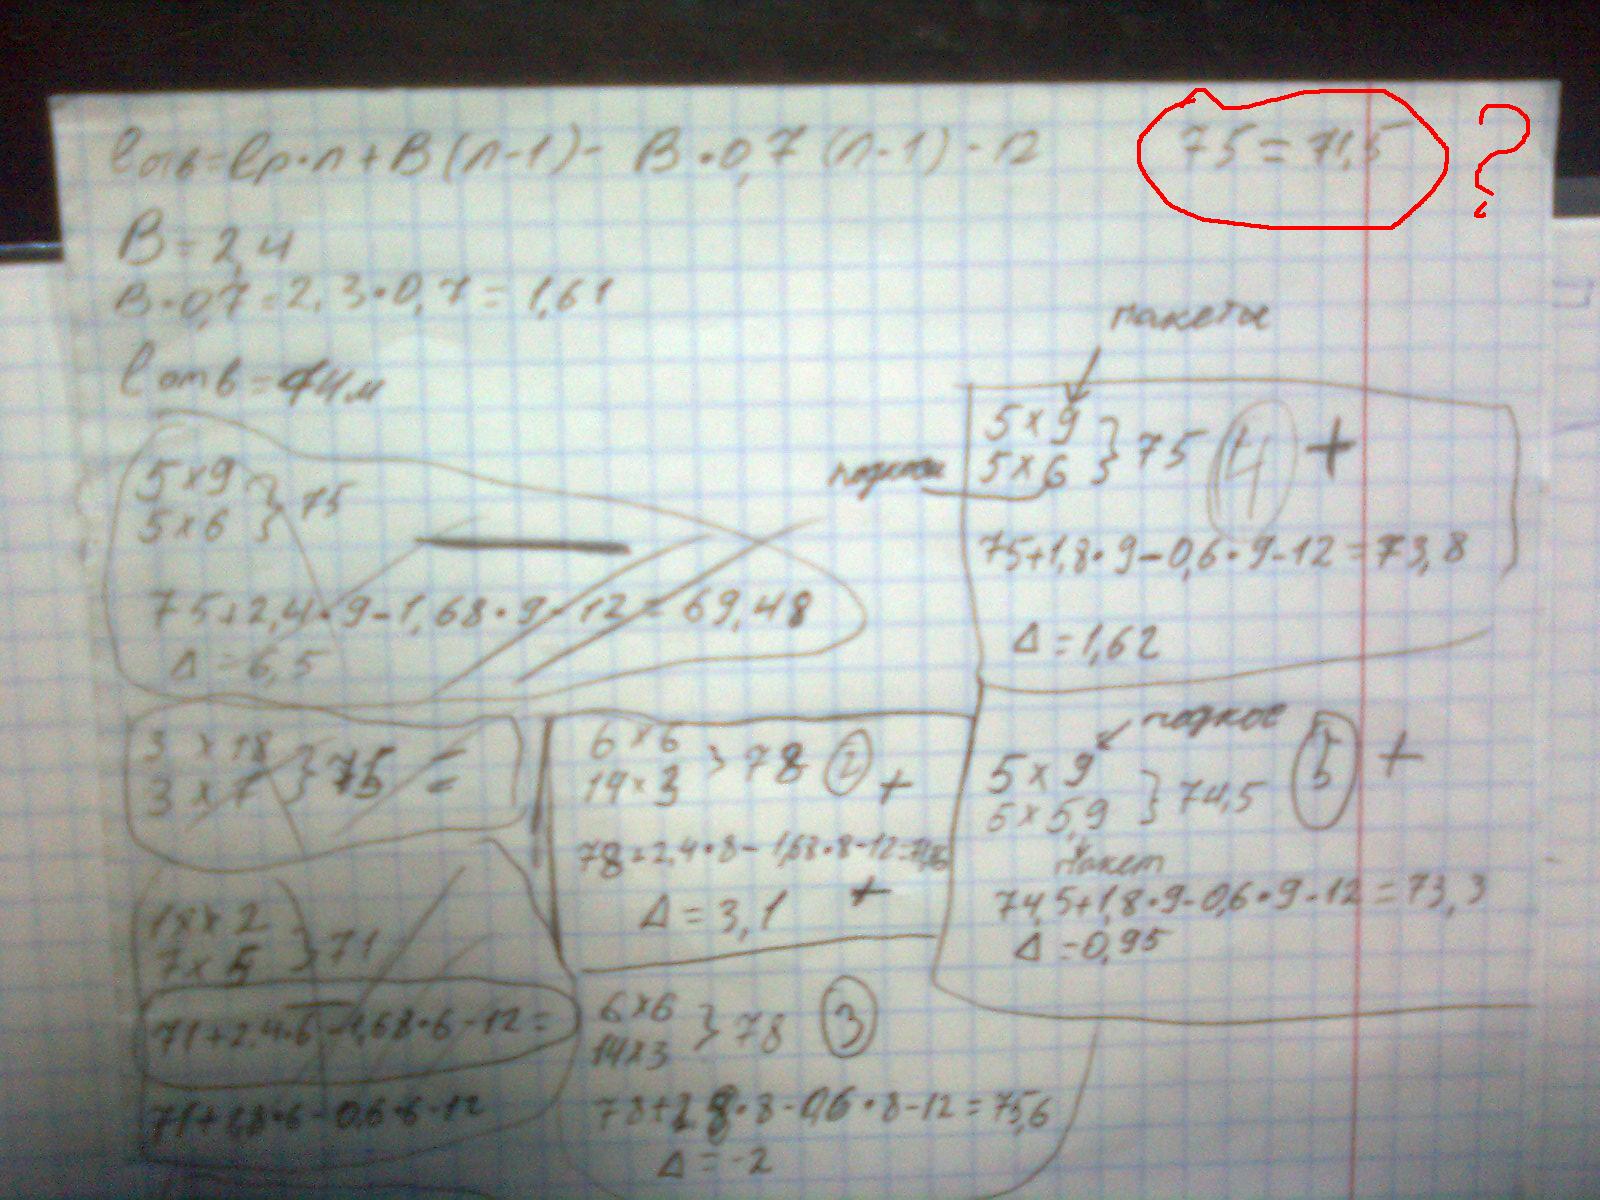 lотв=lр·n+B(n-1)- B·0,7(n-1)-12
75=71,5
?
B=2,4
B·0,7=2,3·0,7=1,61
lотв=74м
5×9
5×6 } 75
75+2,4·9-1,68·9-12=69,48
Δ=6,5
3×18
3×7 } 75
18×2
7×5 } 71
71+2,4·6-1,68·6-12=
71+1,8·6-0,6·6-12
6×6
14×3 } 78 (2) +
78+2,4·8-1,68·8-12=
Δ=3,1 +
6×6
14×3 } 78 (3)
78+1,8·8-0,6·8-12=75,6
Δ=-2
пакеты
5×9
5×6 } 75 (4) +
75+1,8·9-0,6·9-12=73,8
Δ=1,62
подкос
5×9
5×5,9 } 74,5 (5) +
пакет
74,5+1,8·9-0,6·9-12=73,3
Δ=0,95